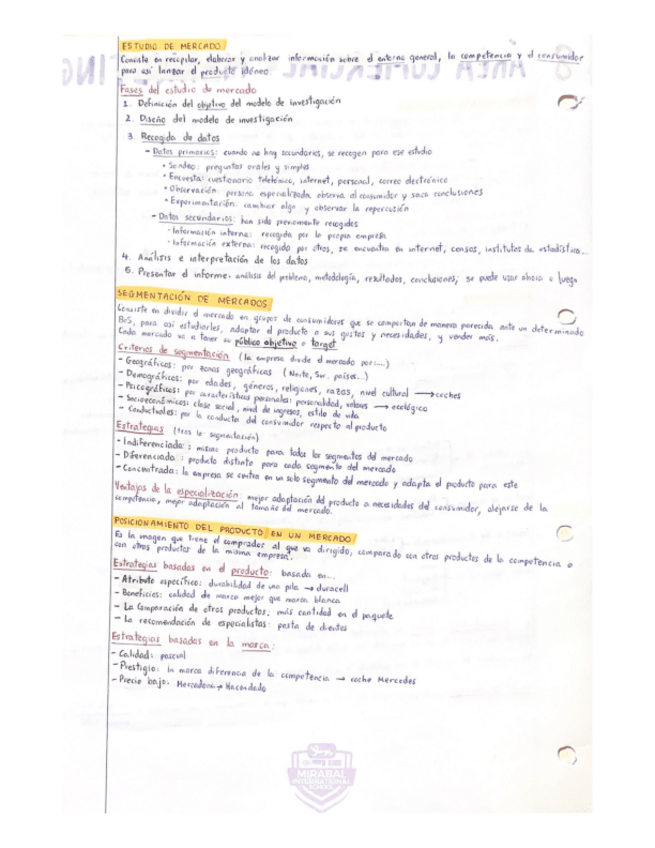 ESTUDIO DE MERCADO
Consiste en recopilar, elaborar y analizar información sobre el entorno general, la competencia y el consumidor
para así lanzar el producto idóneo.
Fases del estudio de mercado
1. Definición del objetivo del modelo de investigación
2. Diseño del modelo de investigación
3. Recogida de datos
- Datos primarios: cuando no hay secundarios, se recogen para ese estudio
· Sondeo: preguntas orales y simples
· Encuesta: cuestionario telefónico, internet, personal, correo electrónico
· Observación: persona especializada observa al consumidor y saca conclusiones
· Experimentación: cambiar algo y observar la repercusión
- Datos secundarios: han sido previamente recogidos
· Información interna: recogida por la propia empresa
· Información externa: recogido por otros, se encuentra en internet, censos, institutos de estadística...
4. Análisis e interpretación de los datos
5. Presentar el informe: análisis del problema, metodología, resultados, conclusiones; se puede usar ahora o luego
SEGMENTACIÓN DE MERCADOS
Consiste en dividir el mercado en grupos de consumidores que se comportan de manera parecida ante un determinado
BoS, para así estudiarles, adaptar el producto a sus gustos y necesidades, y vender más.
Cada mercado va a tener su público objetivo o target
Criterios de segmentación (la empresa divide el mercado por:...)
- Geográficos: por zonas geográficas (Norte, Sur, países...)
- Demográficos: por edades, géneros, religiones, razas, nivel cultural → coches
- Psicográficos: por características personales: personalidad, valores → ecológico
- Socioeconómicos: clase social, nivel de ingresos, estilo de vida
- Conductuales: por la conducta del consumidor respecto al producto
Estrategias (tras la segmentación)
- Indiferenciada: mismo producto para todos los segmentos del mercado
- Diferenciada: producto distinto para cada segmento del mercado
- Concentrada: la empresa se centra en un solo segmento del mercado y adapta el producto para este
Ventajas de la especialización: mejor adaptación del producto a necesidades del consumidor, alejarse de la
competencia, mejor adaptación al tamaño del mercado.
POSICIONAMIENTO DEL PRODUCTO EN UN MERCADO
Es la imagen que tiene el comprador al que va dirigido, comparado con otros productos de la competencia o
con otros productos de la misma empresa.
Estrategias basadas en el producto: basada en...
- Atributo específico: durabilidad de una pila → duracell
- Beneficios: calidad de marca mejor que marca blanca
- La Comparación de otros productos: más cantidad en el paquete
- La recomendación de especialistas: pasta de dientes
Estrategias basadas en la marca:
- Calidad: pascual
- Prestigio: la marca diferencia de la competencia → coche Mercedes
- Precio bajo: Mercadona → Hacendado
MIRABAL
INTERNATIONAL
SCHOOL